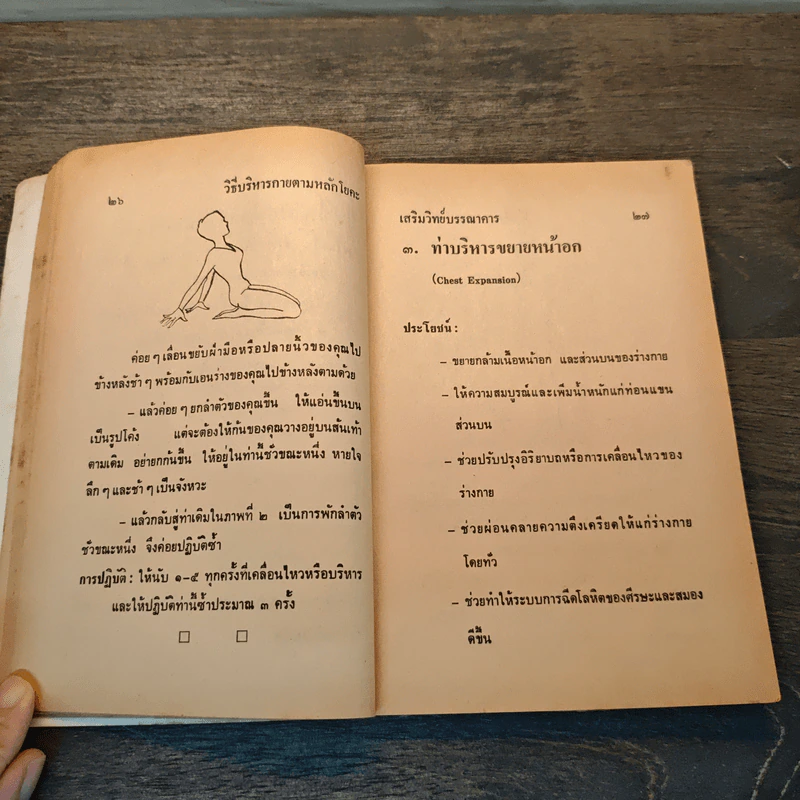 ๒๖
วิธีบริหารกายตามหลักโยคะ
ค่อย ๆ เลื่อนขยับฝ่ามือหรือปลายนิ้วของคุณไป
ข้างหลังช้า ๆ พร้อมกับเอนร่างของคุณไปข้างหลังตามด้วย
– แล้วค่อย ๆ ยกลำตัวของคุณขึ้น ให้แอ่นขึ้นบน
เป็นรูปโค้ง แต่จะต้องให้ก้นของคุณวางอยู่บนส้นเท้า
ตามเดิม อย่ายกก้นขึ้น ให้อยู่ในท่านี้ชั่วขณะหนึ่ง หายใจ
ลึก ๆ และช้า ๆ เป็นจังหวะ
– แล้วกลับสู่ท่าเดิมในภาพที่ ๒ เป็นการพักลำตัว
ชั่วขณะหนึ่ง จึงค่อยปฏิบัติซ้ำ
การปฏิบัติ : ให้นับ ๑–๕ ทุกครั้งที่เคลื่อนไหวหรือบริหาร
และให้ปฏิบัติท่านี้ซ้ำประมาณ ๓ ครั้ง
เสริมวิทย์บรรณาคาร
๒๗
๓. ท่าบริหารขยายหน้าอก
(Chest Expansion)
ประโยชน์ :
– ขยายกล้ามเนื้อหน้าอก และส่วนบนของร่างกาย
– ให้ความสมบูรณ์และเพิ่มน้ำหนักแก่ท่อนแขน
ส่วนบน
– ช่วยปรับปรุงอิริยาบถหรือการเคลื่อนไหวของ
ร่างกาย
– ช่วยผ่อนคลายความตึงเครียดให้แก่ร่างกาย
โดยทั่ว
– ช่วยทำให้ระบบการฉีดโลหิตของศีรษะและสมอง
ดีขึ้น